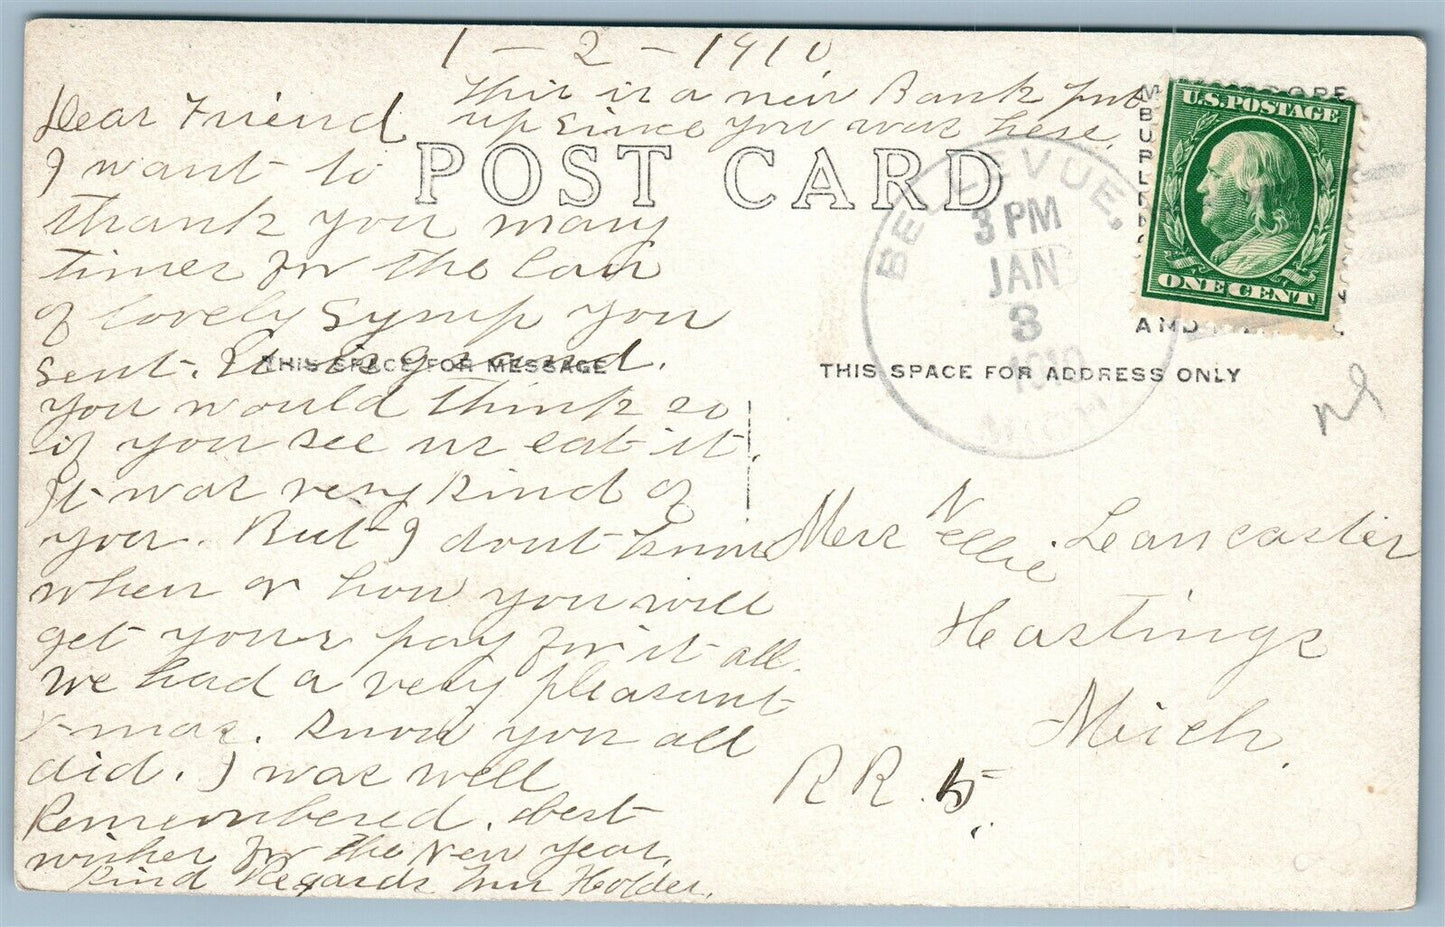 1 - 2 - 1910
This is a new Bank put
up since you was here.
Dear Friend
I want to
thank you many
times for the Can
of lovely Symp you
sent. It is grand.
you would think so
if you see us eat it.
It was very kind of
you. But I dont know
when or how you will
get your pay for it all.
we had a very pleasant
x-mas. know you all
did. I was well
Remembered. best
wishes for the New year.
kind Regards Holder.
POST CARD
THIS SPACE FOR MESSAGE
THIS SPACE FOR ADDRESS ONLY
BELLEVUE,
3 PM
JAN
3
1910
MICH.
U.S.POSTAGE
ONE CENT
AND
Nellie Lancaster
Hastings
Mich.
R R. 5.